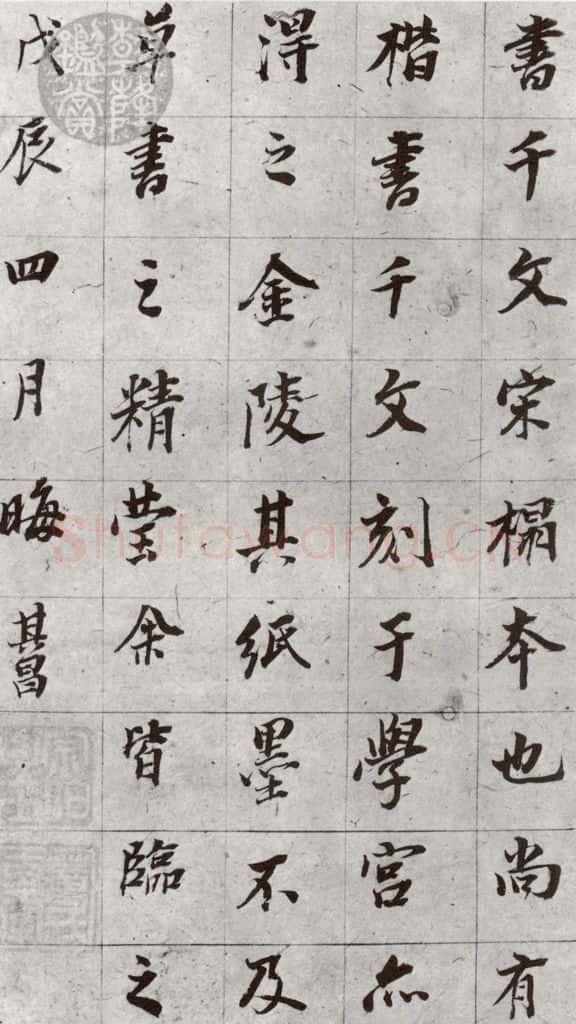 書千文宋榻本也尚有
楷書千文刻于學宮亦
得之金陵其紙墨不及
草書之精瑩余皆臨之
戊辰四月晦其昌
shufawang.cn